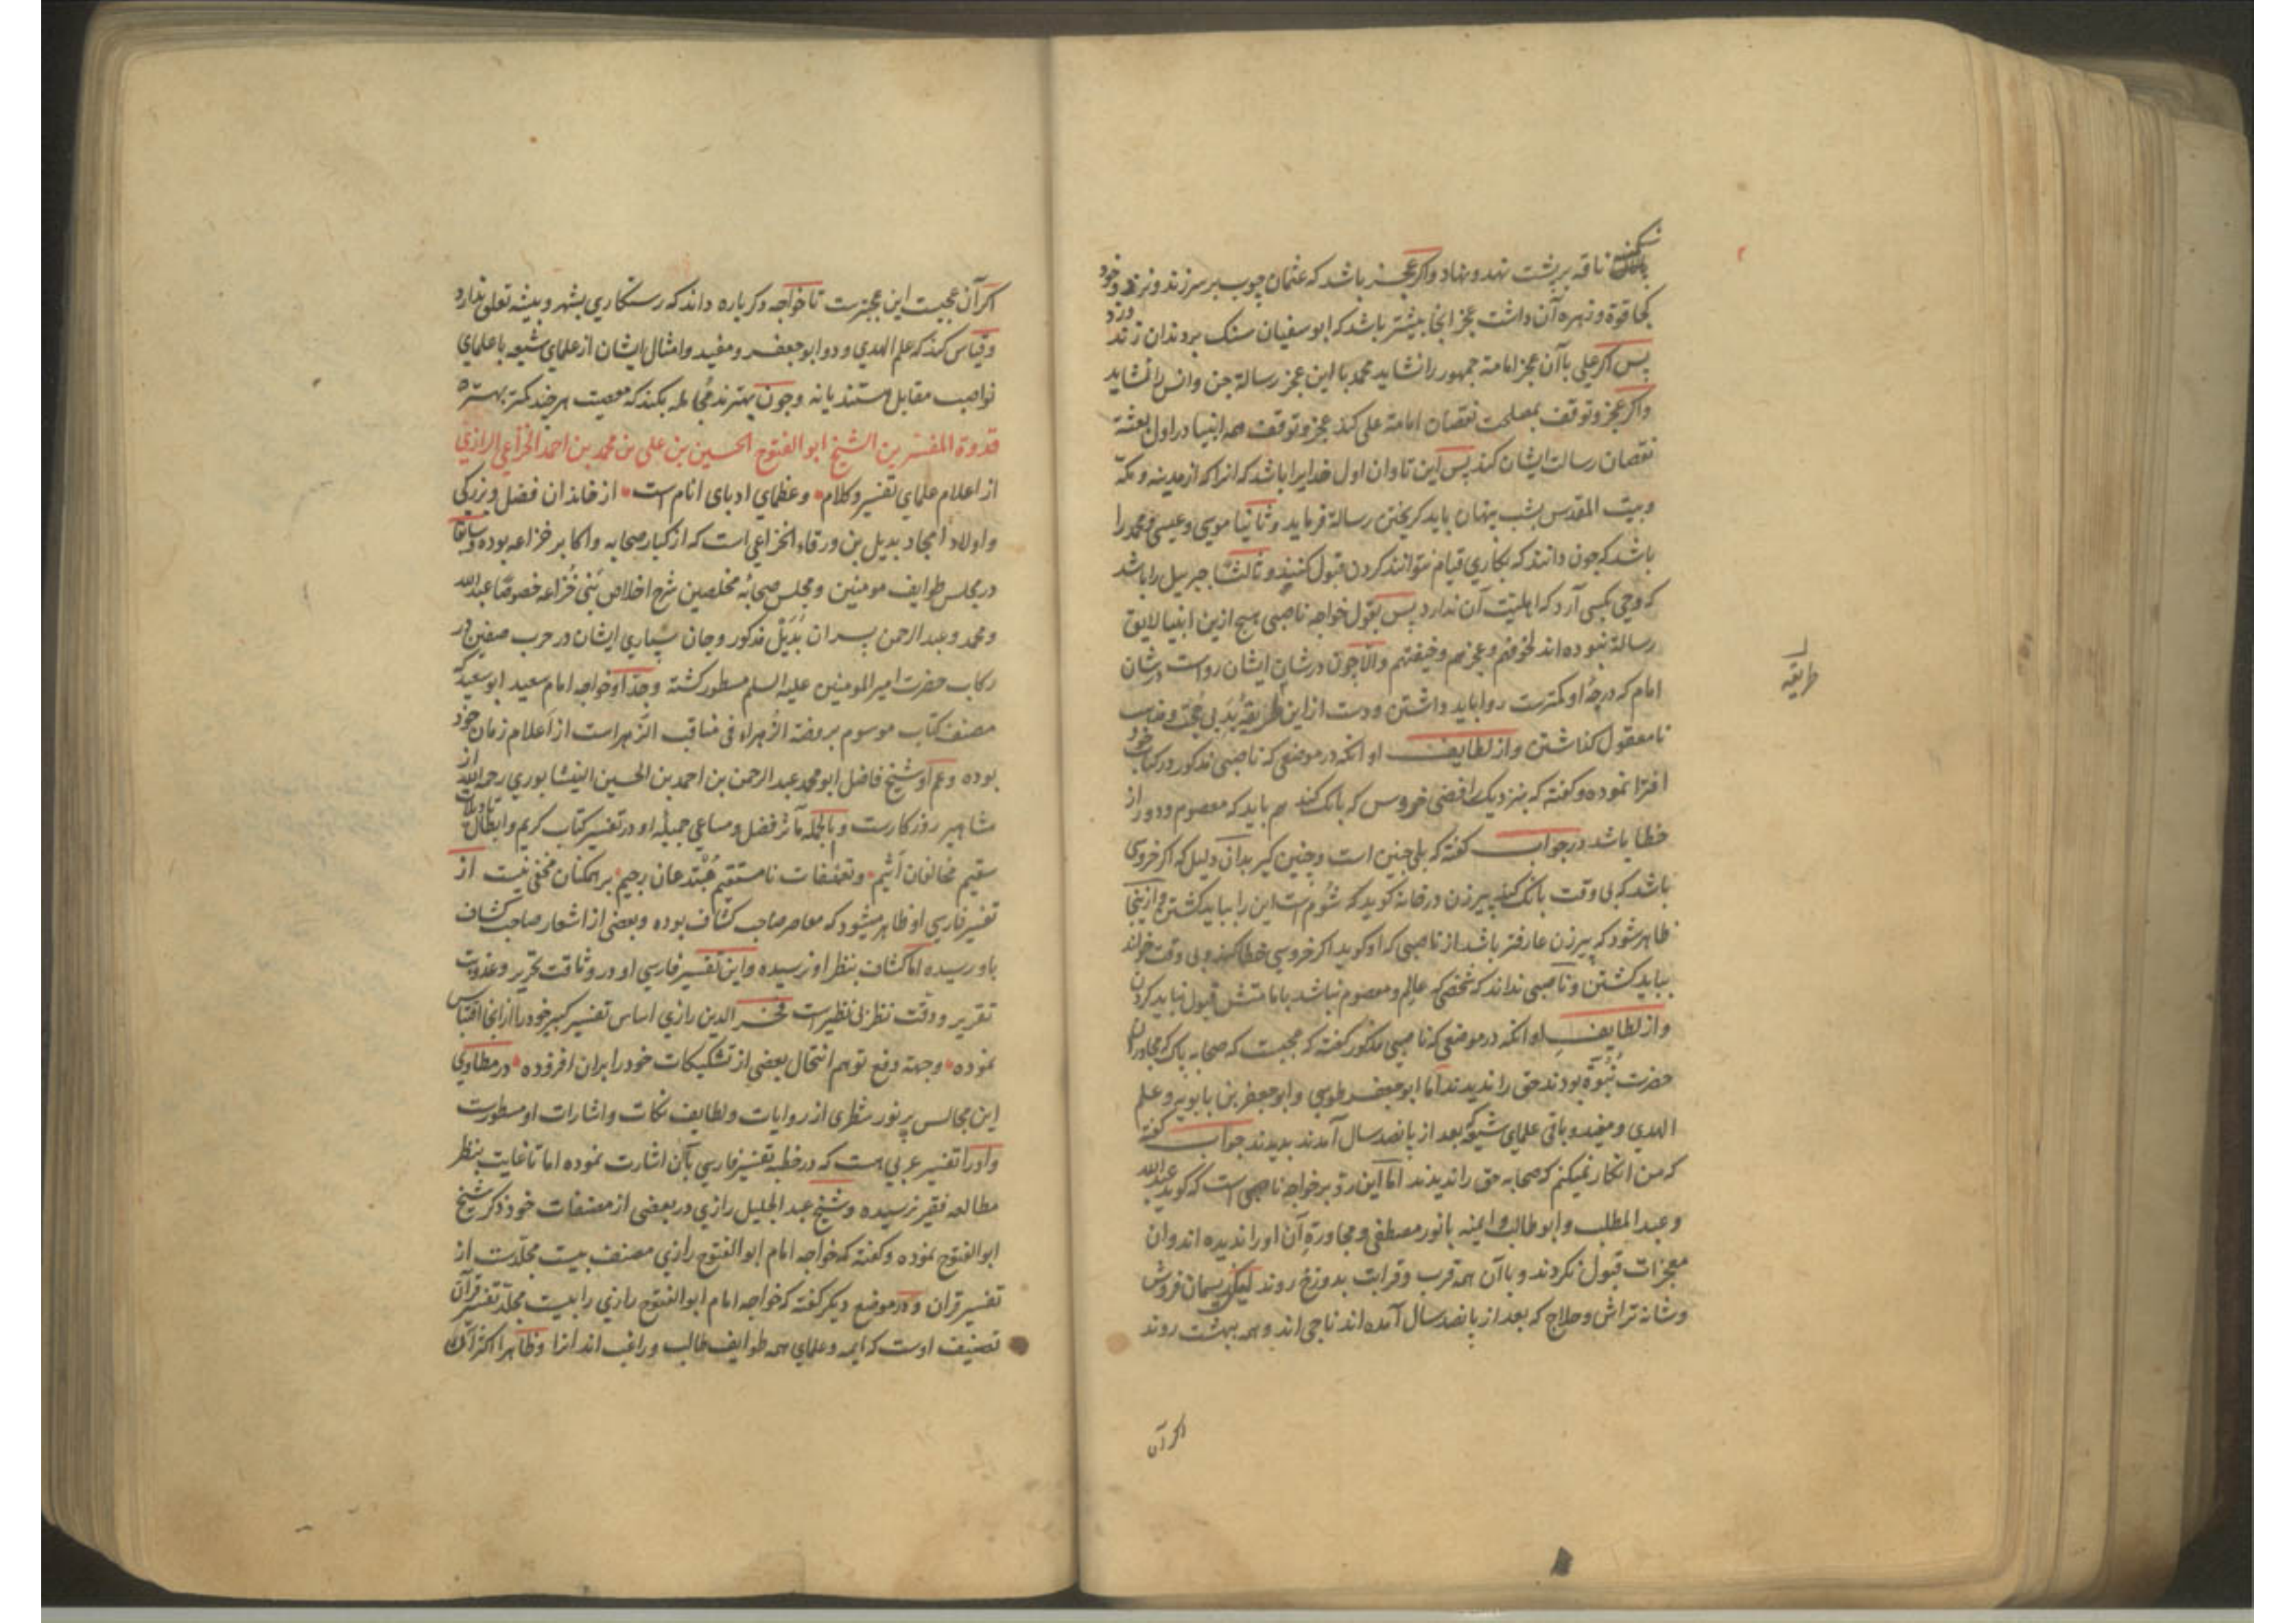 شکنبه ناقه بر پشت نهد و نهاد واکر عجز باشد که عثمان چوب بر سر زند و نزند و خود
کجا قوة و زهره آن داشت عجز انجا بیشتر باشد که ابو سفیان سنک بر دندان زند و نزد
پس اکر علی با آن عجز امامة جمهور را نشاید محمد با این عجز رسالة جن وانس را نشاید
واکر عجز و توقف بمصلحت نقصان امامة علی کند عجز و توقف همه انبیا در اول بعثة
نقصان رسالت ایشان کند پس این تاوان اول خدایرا باشد که انرا که از مدینه و مکه
وبیت المقدس بشب پنهان باید کریختن رسالة فرماید وثانیا موسی وعیسی ومحمد را
باشد که چون دانند که بکاری قیام نتوانند کردن قبول کنند و ثالثا جبریل را باشد
که وحی بکسی آرد که اهلیت آن ندارد پس بقول خواجه ناصبی هیچ ازین انبیا لایق
رسالة نبوده اند لخوفهم وعجزهم وخیفتهم والا چون در شان ایشان رواست در شان
امام که درجهٔ او کمترست روا باید داشتن و دست از این طریقهٔ بد بی حجت و مذهب
نامعقول کذاشتن واز لطایف او انکه در موضعی که ناصبی مذکور در کتاب خود
افترا نموده وکفته که بنزدیک رافضی خروس که بانک کند هم باید که معصوم ودور از
خطا باشد در جواب کفته که بلی چنین است وچنین کیر بدان دلیل که اکر خروسی
باشد که بی وقت بانک کند پیر زن در خانه کوید که شوم است این را بباید کشتن واز ینجا
ظاهر شود که پیر زن عارفتر باشد از ناصبی که او کوید اکر خروسی خطا کند و بی وقت خواند
بباید کشتن و ناصبی نداند که شخصی که عالم ومعصوم نباشد بامامتش قبول نباید کردن
واز لطایف او انکه در موضعی که ناصبی مذکور کفته که عجبست که صحابه پاک که مجاوران
حضرت نبوة بودند حق را ندیدند اما ابو جعفر طوسی وابو جعفر بن بابویه وعلم
الهدی و مفید و باقی علمای شیعه که بعد از پانصد سال آمدند بدیدند جواب کفته
که من انکار نمیکنم که صحابه حق را ندیدند اما این رد بر خواجه ناصبی است که کوید عبد الله
وعبد المطلب وابو طالب وامنه با نور مصطفی و مجاورة آن او را ندیده اند وان
معجزات قبول نکردند و با آن همه قرب وقرابت بدوزخ روند لیکن ریسمان فروش
وشانه تراش وحلاج که بعد از پانصد سال آمده اند ناجی اند وهمه ببهشت روند
طریقه
اکر آن
اکر آن عجبست این عجبترست تا خواجه دکر باره داند که رستکاری بشهر و بیشه تعلق ندارد
وقیاس کند که علم الهدی ودو ابو جعفر ومفید وامثال ایشان از علمای شیعه با علمای
نواصب مقابل هستند یا نه وچون بهترند مجامله بکند که معصیت هر چند کمتر بهتر
قدوة المفسرین الشیخ ابو الفتوح الحسین بن علی بن محمد بن احمد الخزاعی الرازی
از اعلام علمای تفسیر وکلام وعظمای ادبای انام است از خاندان فضل وبزرکی
واولاد امجاد بدیل بن ورقاء الخزاعی است که از کبار صحابه واکابر خزاعه بوده وسابقا
در مجلس طوایف مومنین ومجلس صحابهٔ مخلصین شرح اخلاص بنی خزاعه خصوصا عبد الله
ومحمد وعبد الرحمن پسران بدیل مذکور وجان سپاری ایشان در حرب صفین در
رکاب حضرت امیر المومنین علیه السلم مسطور کشته وجد او خواجه امام سعید ابو سعید که
مصنف کتاب موسوم بروضة الزهراء فی مناقب الزهراست از اعلام زمان خود
بوده وعم او شیخ فاضل ابو محمد عبد الرحمن بن احمد بن الحسین النیشابوری رحمه الله از
مشاهیر روزکارست وبالجمله مآثر فضل ومساعی جمیلهٔ او در تفسیر کتاب کریم وابطال تاویلات
سقیم مخالفان اثیم وتعسفات نامستقیم مبتدعان رجیم بر همکنان مخفی نیست از
تفسیر فارسی او ظاهر میشود که معاصر صاحب کشاف بوده وبعضی از اشعار صاحب کشاف
باو رسیده اما کشاف بنظر او نرسیده واین تفسیر فارسی او در وثاقت تحریر وعذوبت
تقریر ودقت نظر بی نظیر است فخر الدین رازی اساس تفسیر کبیر خود را از انجا اقتباس
نموده وجهة دفع توهم انتحال بعضی از تشکیکات خود را بران افزوده در مطاوی
این مجالس پر نور شطری از روایات ولطایف نکات واشارات او مسطورست
واو را تفسیر عربی هست که در خطبه تفسیر فارسی بآن اشارت نموده اما تا غایت بنظر
مطالعه فقیر نرسیده وشیخ عبد الجلیل رازی در بعضی از مصنفات خود ذکر شیخ
ابو الفتوح نموده وکفته که خواجه امام ابو الفتوح رازی مصنف بیست مجلدست از
تفسیر قران ودر موضع دیکر کفته که خواجه امام ابو الفتوح رازی را بیست مجلد تفسیر قرآن
تصنیف اوست که ایمه وعلمای همه طوایف طالب وراغب اند انرا وظاهرا اکثر آن